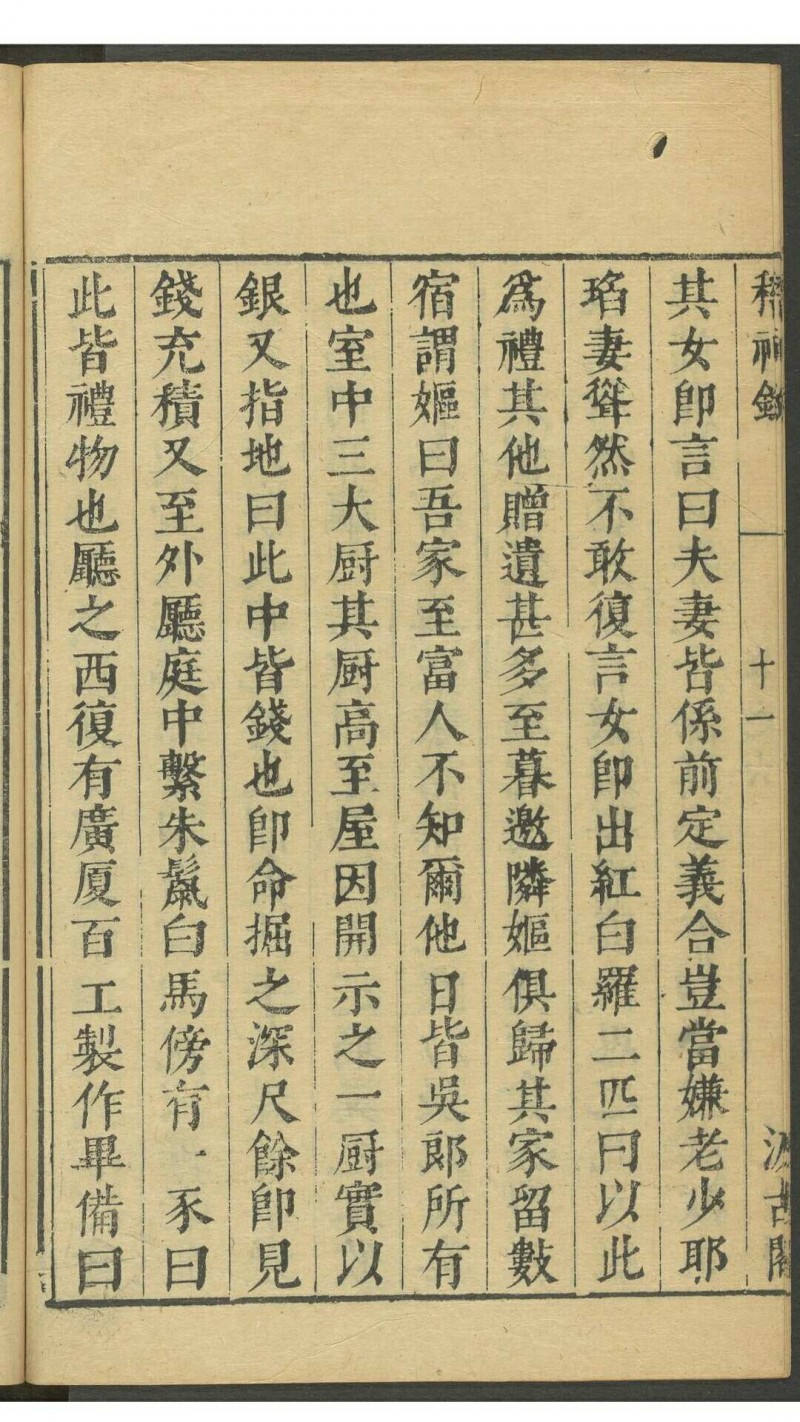 稽神錄 十一 汲古閣
其女卽言曰夫妻皆係前定義合豈當嫌老少耶
珨妻聳然不敢復言女卽出紅白羅二匹曰以此
爲禮其他贈遺甚多至暮邀隣嫗俱歸其家留數
宿謂嫗曰吾家至富人不知爾他日皆吳郞所有
也室中三大厨其厨高至屋因開示之一厨實以
銀又指地曰此中皆錢也卽命掘之深尺餘卽見
錢充積又至外廳庭中繫朱鬣白馬傍有一豕曰
此皆禮物也廳之西復有廣厦百工製作畢備曰